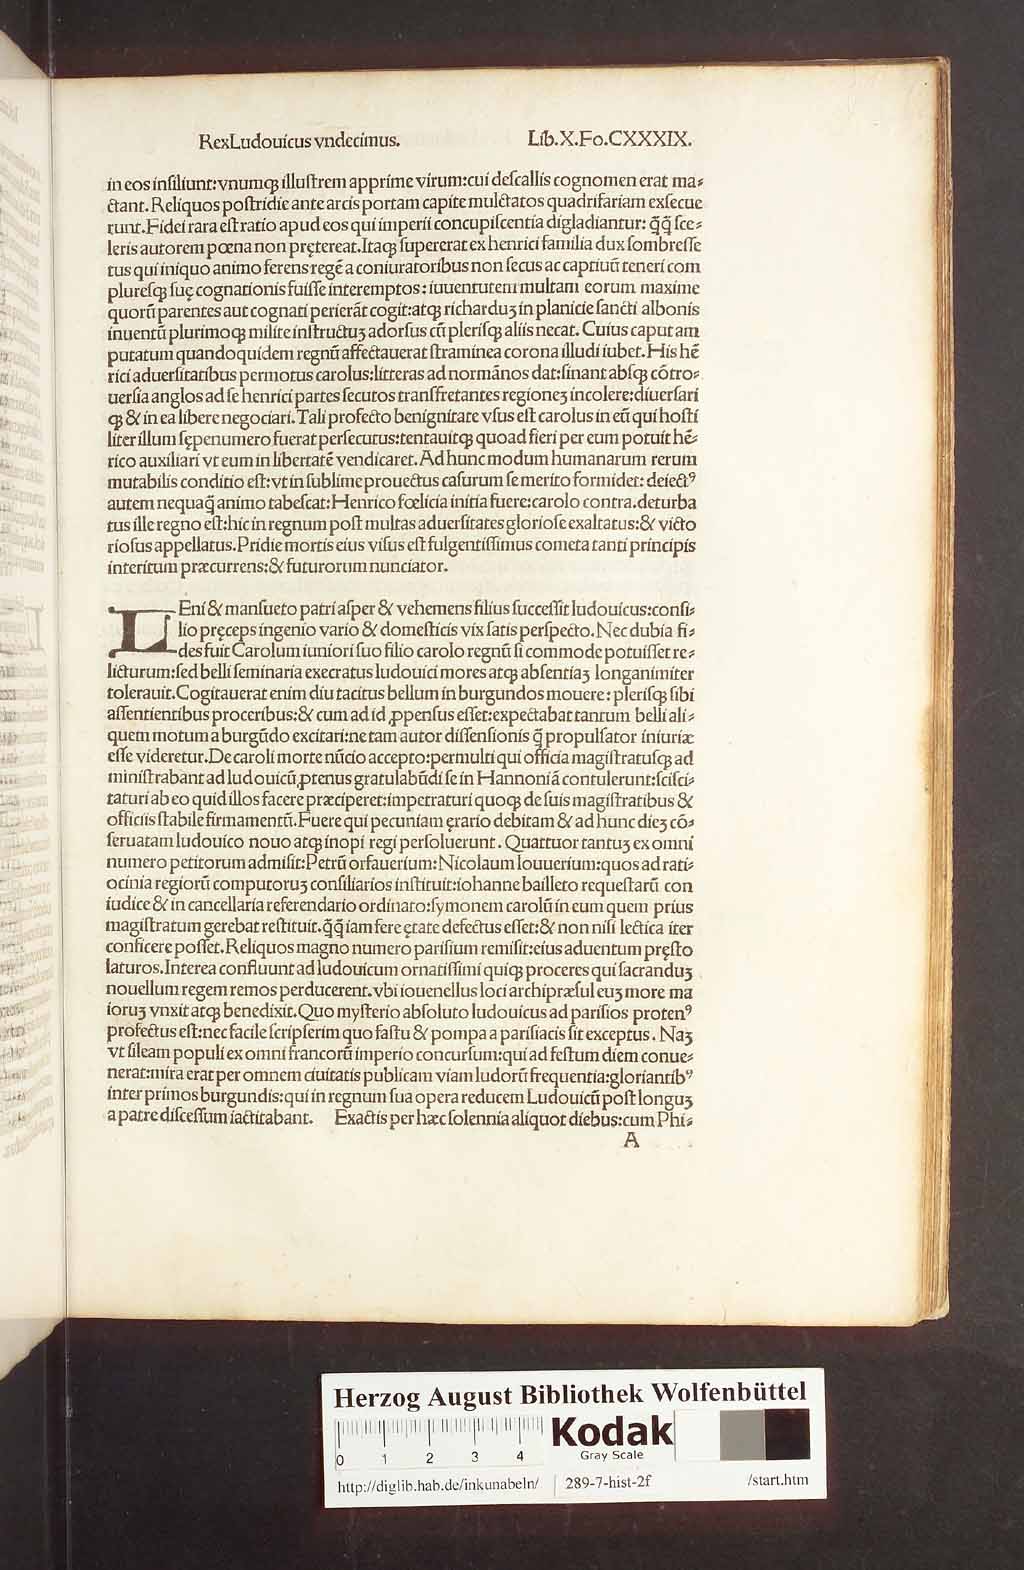 RexLudouicus vndecimus. Lib.X.Fo.CXXXIX.
in eos insiliunt:vnumqꝫ illustrem apprime virum:cui descallis cognomen erat ma⸗
ctant. Reliquos postridie ante arcis portam capite mulctatos quadrifariam exsecue
runt. Fidei rara est ratio apud eos qui imperii concupiscentia digladiantur: q̄q̄ sce⸗
leris autorem pœna non prętereat. Itaqꝫ supererat ex henrici familia dux sombresse
tus qui iniquo animo ferens regē a coniuratoribus non secus ac captiuū teneri com
pluresqꝫ suę cognationis fuisse interemptos: iuuentutem multam eorum maxime
quorū parentes aut cognati perierāt cogit:atqꝫ richarduꝫ in planicie sancti albonis
inuentū plurimoqꝫ milite instructuꝫ adorsus cū plerisqꝫ aliis necat. Cuius caput am
putatum quandoquidem regnū affectauerat straminea corona illudi iubet. His hē
rici aduersitatibus permotus carolus:litteras ad normānos dat:sinant absqꝫ cōtro⸗
uersia anglos ad se henrici partes secutos transfretantes regioneꝫ incolere:diuersari
qꝫ & in ea libere negociari. Tali profecto benignitate vsus est carolus in eū qui hosti
liter illum sępenumero fuerat persecutus:tentauitqꝫ quoad fieri per eum potuit hē⸗
rico auxiliari vt eum in libertatē vendicaret. Ad hunc modum humanarum rerum
mutabilis conditio est:vt in sublime prouectus casurum se merito formidet: deiectꝰ
autem nequaq̄ animo tabescat: Henrico fœlicia initia fuere:carolo contra. deturba
tus ille regno est:hic in regnum post multas aduersitates gloriose exaltatus:& victo
riosus appellatus. Pridie mortis eius visus est fulgentissimus cometa tanti principis
interitum præcurrens:& futurorum nunciator.
LEni & mansueto patri asper & vehemens filius successit ludouicus:consi⸗
lio pręceps ingenio vario & domesticis vix satis perspecto. Nec dubia fi⸗
des fuit Carolum iuniori suo filio carolo regnū si commode potuisset re⸗
licturum:sed belli seminaria execratus ludouici mores atqꝫ absentiaꝫ longanimiter
tolerauit. Cogitauerat enim diu tacitus bellum in burgundos mouere: plerisqꝫ sibi
assentientibus proceribus:& cum ad id ꝓpensus esset:expectabat tantum belli ali⸗
quem motum a burgūdo excitari:ne tam autor dissensionis q̄ propulsator iniuriæ
esse videretur. De caroli morte nūcio accepto:permulti qui officia magistratusqꝫ ad
ministrabant ad ludouicū ꝓtenus gratulabūdi se in Hannoniā contulerunt:scisci⸗
taturi ab eo quid illos facere præciperet:impetraturi quoqꝫ de suis magistratibus &
officiis stabile firmamentū. Fuere qui pecuniam ęrario debitam & ad hunc dieꝫ cō⸗
seruatam ludouico nouo atqꝫ inopi regi persoluerunt. Quattuor tantuꝫ ex omni
numero petitorum admisit:Petrū orfaueríum:Nicolaum louuerium:quos ad rati⸗
ocinia regiorū computoruꝫ consiliarios instituit:iohanne bailleto requestarū con
iudice & in cancellaria referendario ordinato:symonem carolū in eum quem prius
magistratum gerebat restituit. q̄q̄ iam fere ętate defectus esset:& non nisi lectica iter
conficere posset. Reliquos magno numero parisium remisit:eius aduentum pręsto
laturos. Interea confluunt ad ludouicum ornatissimi quiqꝫ proceres qui sacranduꝫ
nouellum regem remos perducerent. vbi iouenellus loci archipræsul euꝫ more ma
ioruꝫ vnxit atqꝫ benedixit. Quo mysterio absoluto ludouicus ad parisios protenꝰ
profectus est:nec facile scripserim quo fastu & pompa a parisiacis sit exceptus. Naꝫ
vt sileam populi ex omni francorū imperio concursum:qui ad festum diem conue⸗
nerat:mira erat per omnem ciuitatis publicam viam ludorū frequentia:gloriantibꝰ
inter primos burgundis:qui in regnum sua opera reducem Ludouicū post longuꝫ
a patre discessum iactitabant. Exactis per hæc solennia aliquot diebus:cum Phi⸗
A
Herzog August Bibliothek Wolfenbüttel
0 1 2 3 4
Kodak
Gray Scale
http://diglib.hab.de/inkunabeln/ 289-7-hist-2f /start.htm